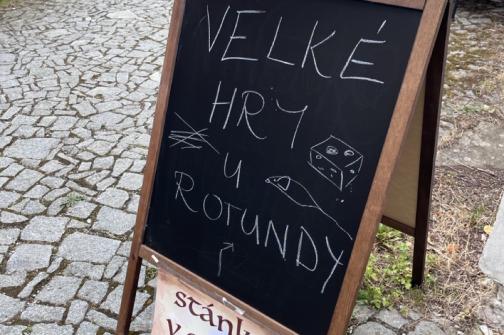 VELKÉ
HRY
U
ROTUNDY
stánk